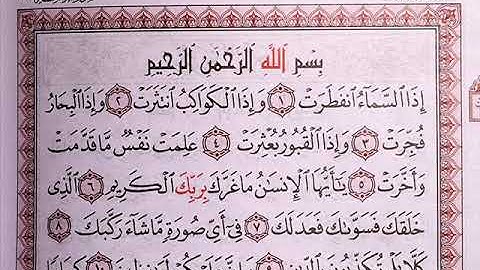 بِسْمِ اللَّهِ الرَّحْمَٰنِ الرَّحِيمِ
إِذَا السَّمَاءُ انفَطَرَتْ ١ وَإِذَا الْكَوَاكِبُ انتَثَرَتْ ٢ وَإِذَا الْبِحَارُ
فُجِّرَتْ ٣ وَإِذَا الْقُبُورُ بُعْثِرَتْ ٤ عَلِمَتْ نَفْسٌ مَّا قَدَّمَتْ
وَأَخَّرَتْ ٥ يَا أَيُّهَا الْإِنسَانُ مَا غَرَّكَ بِرَبِّكَ الْكَرِيمِ ٦ الَّذِي
خَلَقَكَ فَسَوَّاكَ فَعَدَلَكَ ٧ فِي أَيِّ صُورَةٍ مَّا شَاءَ رَكَّبَكَ ٨